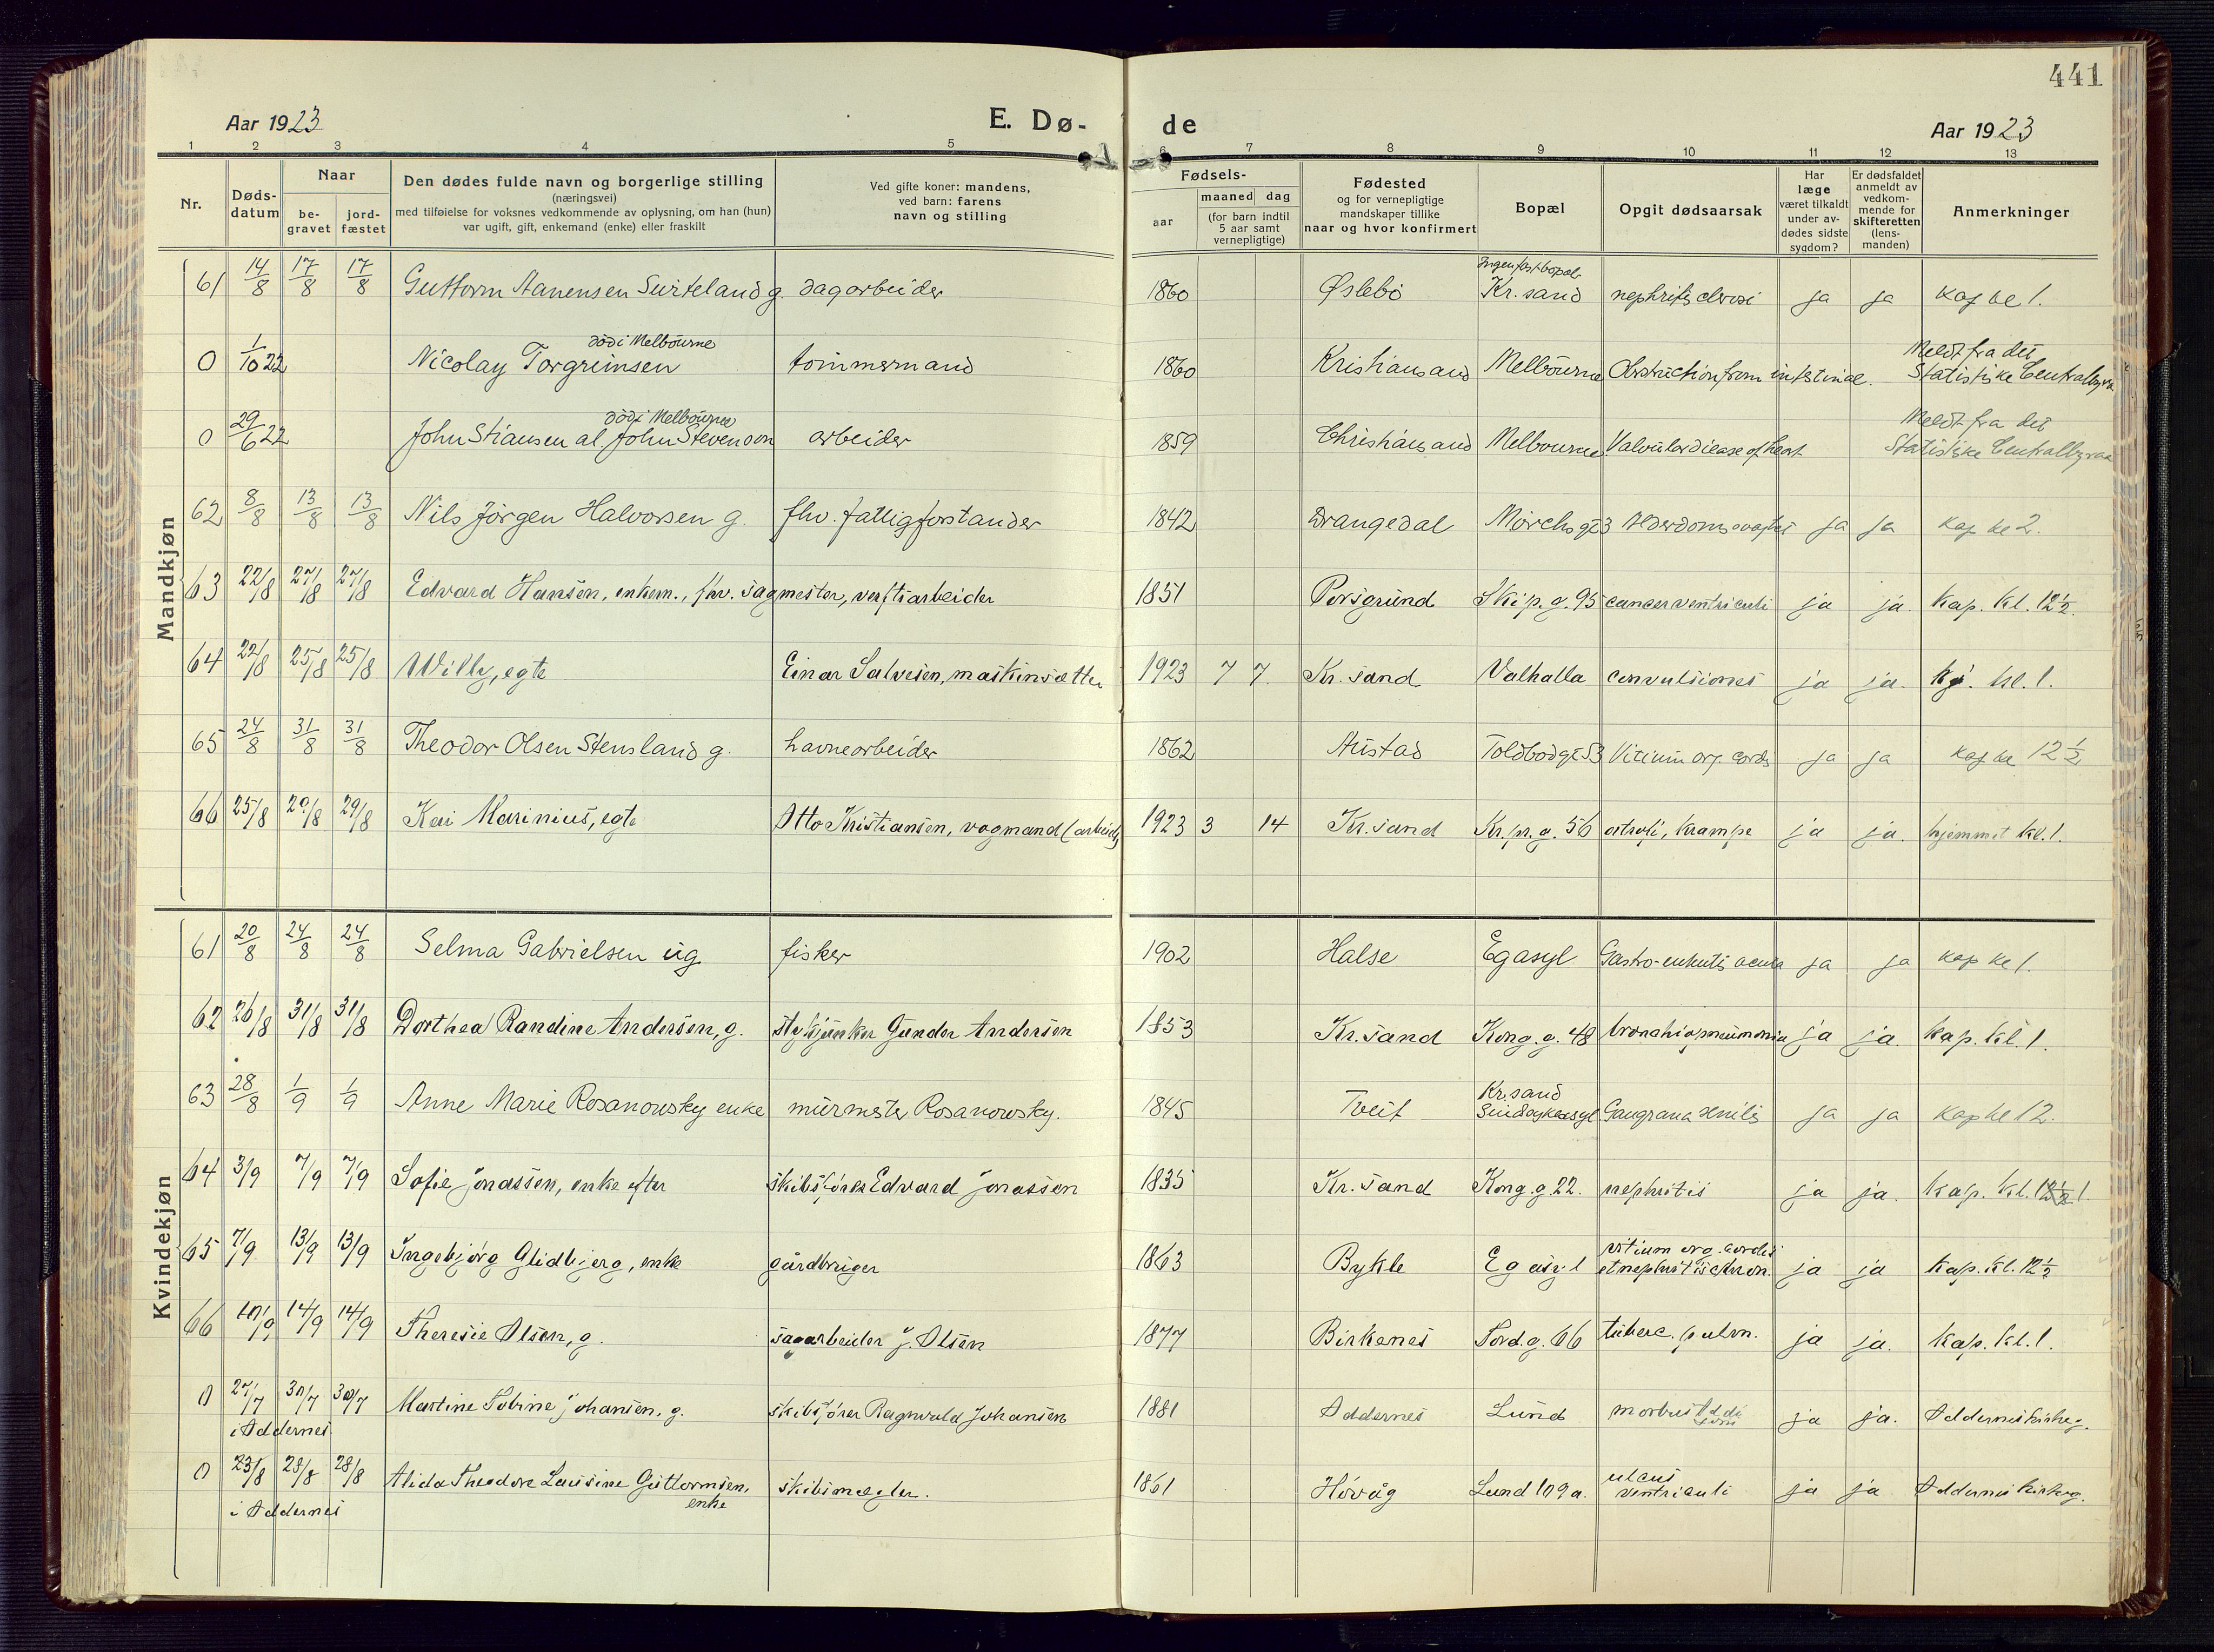 441
Aar 1923
E. Dø-
de
Aar 1923
1 2 3 4 5 6 7 8 9 10 11 12 13
Nr.
Døds-
datum
Naar
be-
gravet
jord-
fæstet
Den dødes fulde navn og borgerlige stilling
(næringsvei)
med tilføielse for voksnes vedkommende av oplysning, om han (hun)
var ugift, gift, enkemand (enke) eller fraskilt
Ved gifte koner: mandens,
ved barn: farens
navn og stilling
Fødsels-
aar
maaned dag
(for barn indtil
5 aar samt
vernepligtige)
Fødested
og for vernepligtige
mandskaper tillike
naar og hvor konfirmert
Bopæl
Opgit dødsaarsak
Har
læge
været tilkaldt
under av-
dødes sidste
sygdom?
Er dødsfaldet
anmeldt av
vedkom-
mende for
skifteretten
(lens-
manden)
Anmerkninger
Mandkjøn
61 14/8 17/8 17/8 Guttorm Aanensen Suiteland g. dagarbeider 1860 Øslebö Ingen fast bopæl Kr.sand ja ja kap kl 1.
0 1/10 22 Nicolay Torgreimsen död i Melbourne tömmermand 1860 Kristiansand Melbourne Obstruction from intestinal. Meldt fra det Statistiske Centralbyraa
0 29/6 22 John Stiansen al. John Stevenson död i Melbourne arbeider 1859 Christiansand Melbourne Valvular diease of heart Meldt fra det Statistiske Centralbyraa
62 8/8 13/8 13/8 Nils Jörgen Halvorsen g. fhv. fattigforstander 1842 Drangedal Mörchsgt 3 Alderdomssvaghet ja ja kap kl 2.
63 22/8 27/8 27/8 Edvard Hansen, enkem., fhv. sagmester, verftsarbeider 1851 Porsgrund Skip.g. 95 cancer ventriculi ja ja. kap. kl. 12 1/2.
64 22/8 25/8 25/8 Willy, egte Einar Salvesen, maskinsætter 1923 7 7. Kr.sand Valhalla convulsiones ja ja. kl. 1.
65 24/8 31/8 31/8 Theodor Olsen Stensland g. havnearbeider 1862 Austad Toldbodgt 53 Vitium org. cordis ja ja kap kl 12 1/2
66 25/8 29/8 29/8 Kai Marinius, egte Otto Kristiansen, vogmand (arbeid) 1923 3 14 Kr.sand Kr.pr.g. 56 atrofi, krampe ja ja. hjemmet kl. 1.
Kvindekjøn
61 20/8 24/8 24/8 Selma Gabrielsen ug fisker 1902 Halse Eg asyl Gastro-enteritis acuta ja ja kap kl 1.
62 26/8 31/8 31/8 Dorthea Randine Andersen, g. Gunder Andersen 1853 Kr.sand Kong.g. 48 bronchiopneumonia ja ja. kap. kl. 1.
63 28/8 1/9 1/9 Anne Marie Rosanowsky enke murmester Rosanowsky. 1845 Tveit Kr.sand Sindsykeasyl Gangrana senilis ja ja kap kl 12.
64 3/9 7/9 7/9 Sofie Jonassen, enke efter skibsfører Edvard Jonassen 1835 Kr.sand Kong.g 22. nephritis ja ja. kap. kl. 12 1/2 1.
65 7/9 13/9 13/9 Ingebjørg Glidbjerg, enke gårdbruger 1863 Bykle Eg asyl vitium org. cordis et nephritis chron. ja ja kap. kl. 12 1/2
66 10/9 14/9 14/9 Theresie Olsen, g. sagarbeider J. Olsen 1877 Birkenes Tord.g. 66 tuberc. pulm. ja ja. kap. kl. 1.
0 27/7 30/7 30/7 Martine Tobine Johansen, g. skibsfører Ragnvald Johansen 1881 Oddernes Lund morbus Addisoni ja ja. Oddernes kirkeg.
i Oddernes.
0 23/8 28/8 28/8 Alida Theodore Lausine Guttormsen, enke skibsmægler. 1861 Høvåg Lund 109 a. ulcus ventriculi ja ja Oddernes kirkeg.
i Oddernes